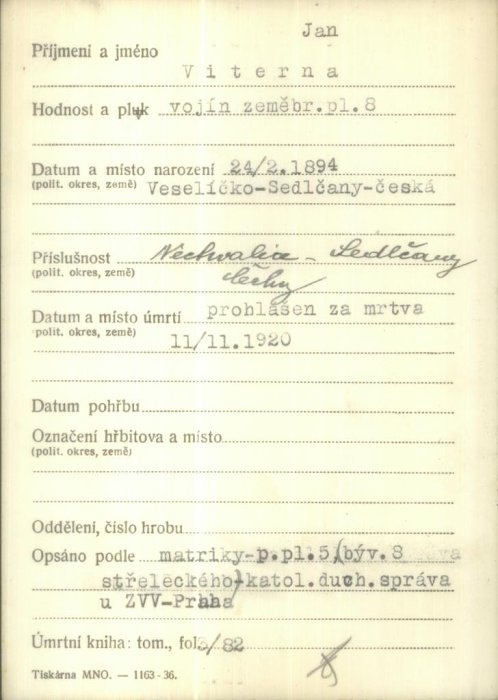 Jan
Příjmení a jméno
Viterna
Hodnost a pluk vojín zeměbr.pl.8
Datum a místo narození 24/2.1894
(polit. okres, země) Veselíčko-Sedlčany-česká
Příslušnost Nechvalice - Sedlčany
(polit. okres, země) Čechy
Datum a místo úmrtí prohlášen za mrtva
(polit. okres, země)
11/11.1920
Datum pohřbu
Označení hřbitova a místo
(polit. okres, země)
Oddělení, číslo hrobu
Opsáno podle matriky-p.pl.5/býv.8
střeleckého/-katol.duch.správa
u ZVV-Praha
Úmrtní kniha: tom., fol. 3/82
Tiskárna MNO. — 1163-36.